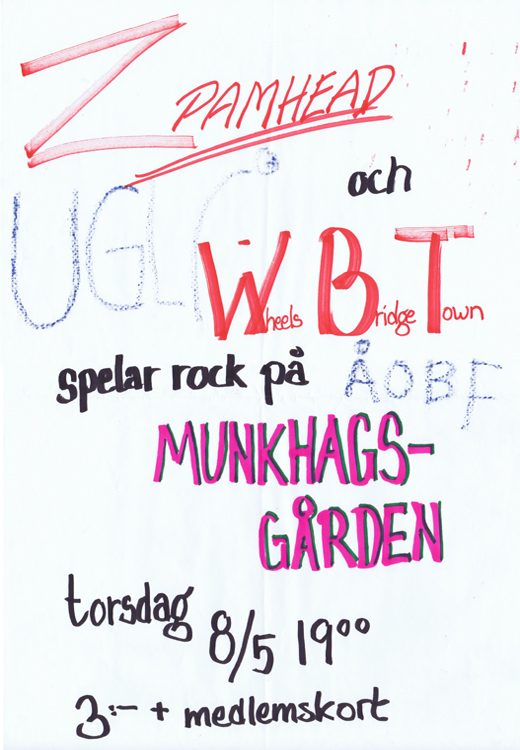 ZPAMHEAD
och
UGLÅ
Wheels Bridge Town
spelar rock på
ÅOBF
MUNKHAGS-
GÅRDEN
torsdag
8/5 19⁰⁰
3:- + medlemskort